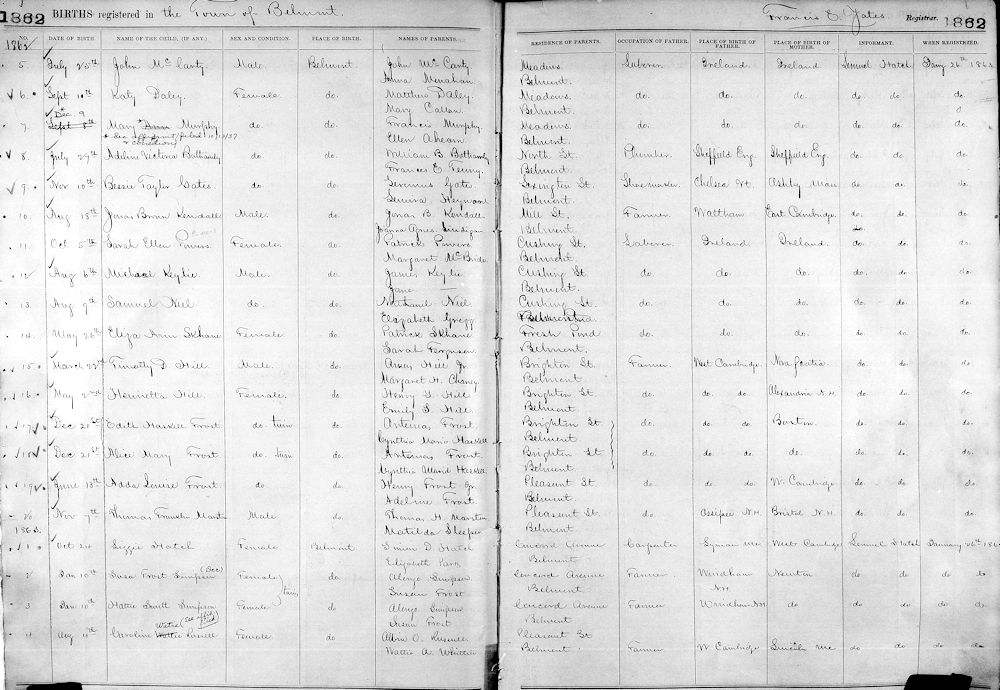 1862 BIRTHS registered in the Town of Belmont. Francis E. Yates. Registrar. 1862
NO. DATE OF BIRTH. NAME OF THE CHILD, (IF ANY.) SEX AND CONDITION. PLACE OF BIRTH. NAMES OF PARENTS. RESIDENCE OF PARENTS. OCCUPATION OF FATHER. PLACE OF BIRTH OF FATHER. PLACE OF BIRTH OF MOTHER. INFORMANT. WHEN REGISTERED.
1862
5 July 25th John McCarty Male Belmont John McCarty Meadows Laborer Ireland Ireland Samuel Hatch Jany 26th 1863
Anna Monahan Belmont.
6 Sept 10th Katy Daley. Female do. Matthew Daley Meadows. do. do. do. do. do. do.
Mary Callan Belmont.
Dec. 9
7. Sept 8th Mary Ann Murphy do. do. Francis Murphy. Meadows do. do. do. do. do. do.
Ellen Ahearn Belmont.
8. July 27th Adeline Victoria Bothamly do. do. William B. Bothamly North St. Plumber Sheffield Eng. Sheffield Eng. do. do. do.
Frances E. Belmont.
9. Nov 10th Bessie Taylor Gates. do. do. Gates. Lexington St. Shoemaker. Chelsea Vt. Ashby Mass do. do. do.
Heywood Belmont.
10. Aug 18th Jonas Brown Kendall Male. do. Jonas B. Kendall Mill St. Farmer Waltham East Cambridge. do. do. do.
Joanna Agnes Belmont
11. Oct 5th Sarah Ellen Powers Female. do. Patrick Powers. Cushing St. Laborer. Ireland Ireland. do. do. do.
Margaret McBride Belmont.
12 Aug 6th Michael Keylie. Male. do. James Keylie Cushing St do. do. do. do. do. do.
Jane — Belmont.
13. Aug 9th Samuel Niel do. do. Nathaniel Niel Cushing St. do. do. do. do. do. do.
Elizabeth Gregg
14. May 26th Eliza Ann Female do. Patrick Fresh Pond do. do. do. do. do. do.
Sarah Ferguson Belmont.
15. March 22nd Timothy D. Hill. Male. do. Hill Jr. Brighton St. Farmer. West Cambridge. Nova Scotia. do. do. do.
Margaret H. Cheney. Belmont.
16. May 2nd Henrietta Hill. Female. do. Henry Y. Hill Brighton St. do. do. do. Alexandria N.H. do. do. do.
Emily S. Hill. Belmont.
17 Dec 21st Edith Haskell Frost do. twin do. Artemas Frost. Brighton St do. do. do. Boston. do. do. do.
Cynthia Maria Haskell Belmont
18 Dec 21st Alice Mary Frost do. twin do. Artemas Frost. Brighton St do. do. do. do. do. do. do.
Cynthia Maria Haskell Belmont
19 June 18th Adda Louise Frost. do. do. Henry Frost Jr. Pleasant St do. do. do. W. Cambridge do. do. do.
Adeline Frost Belmont.
20 Nov 7th Thomas Franklin Marston Male do. Thomas H. Marston Pleasant St. do. Ossipee N.H. Bristol N.H. do. do. do.
1863. Matilda Sleeper Belmont
1 Oct 24 Lizzie Hatch Female Belmont Simon D. Hatch Concord Avenue Carpenter Lyman Me West Cambridge Samuel Hatch January 26th
Elizabeth Park Belmont
2 Jan 10th Susa Frost Simpson Female do Alonzo Simpson. Concord Avenue Farmer. Windham Newton do do do do
Twins Susan Frost Belmont N.H
3 Jan 10th Hattie Smith Simpson Female do. Alonzo Simpson Concord Avenue Farmer Windham N.H. do do do do do
Susan Frost Belmont
4 Aug Caroline Wattie Russell Female do Pleasant St
Wattie A. Belmont. Farmer W Cambridge Lincoln Me do do do do